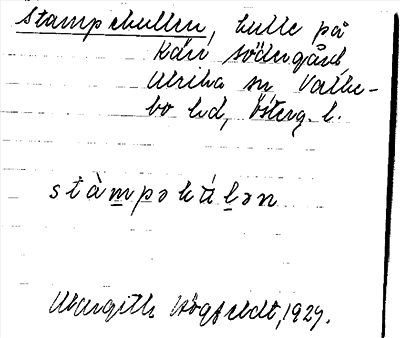 Stampekullen, kulle på
Kärr södergård,
Ulrika sn, Valke-
bo hd, Österg. l.
stàmpəkálən
Margith Högfeldt, 1929.